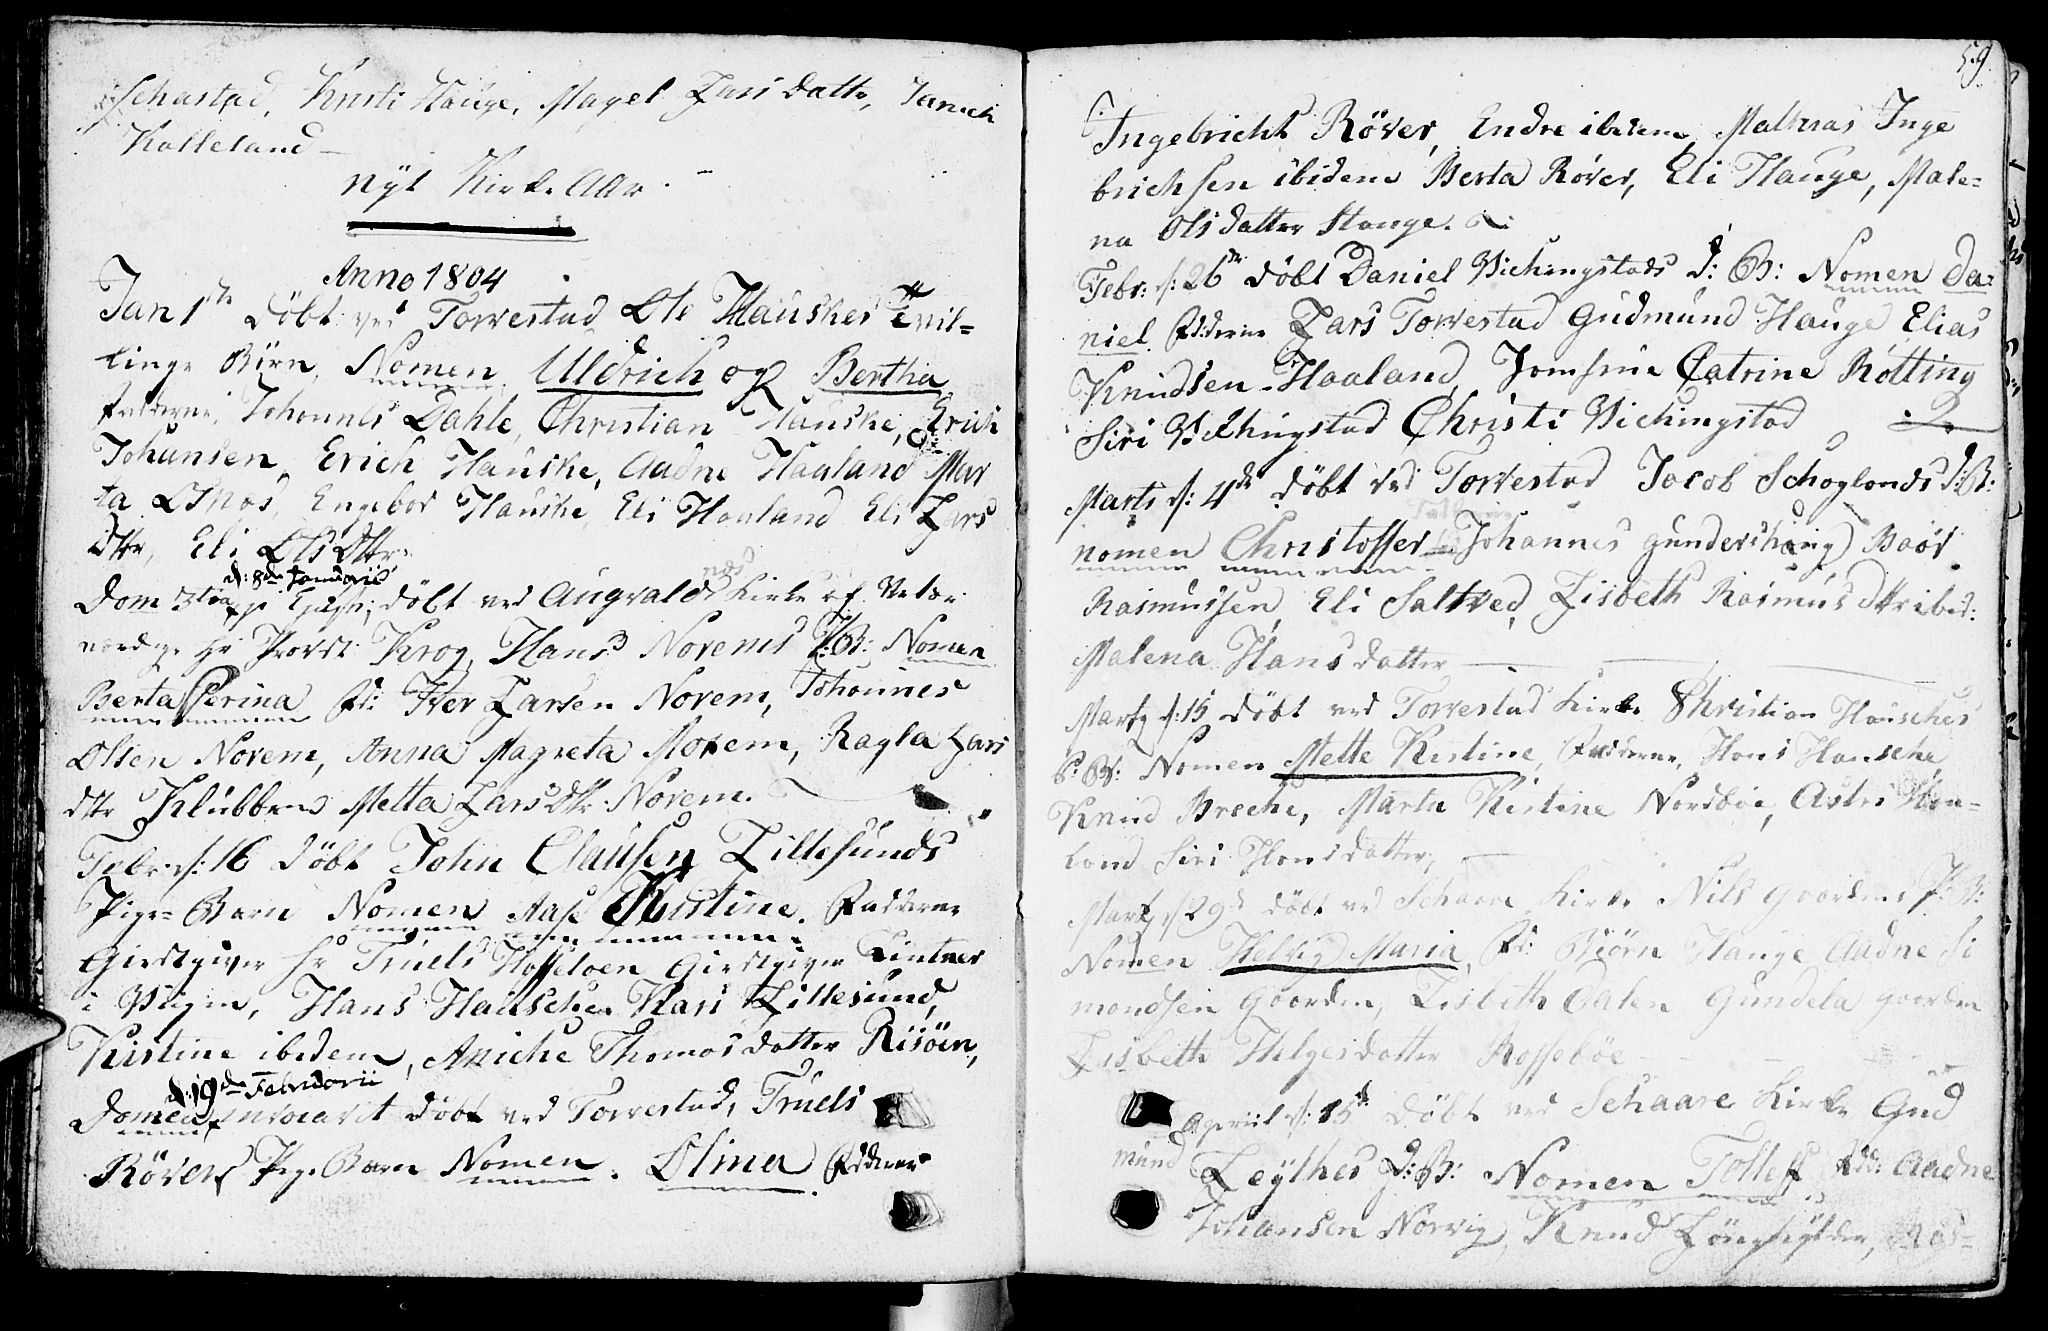 Schastad, Kristi Hauge, Magel Lars datter, Janich
Kolleland –
nyt Kirke Aar.
Anno 1804
Jan 1te Döbt ved Torvestad Ole Hauskes Tvil=
linge Börn, Nomen Uldrich og Bertha
Fadderne, Johannes Dahle, Christian Hauske, Erich
Johansen, Erich Hauske, Aadne Haaland Mar
ta Osnes, Engebor Hauske, Eli Haaland Eli Lars
Dttr, Eli Ols Dttr
d: 8de Januarii
Dom 3tia p Epiph; döbt ved Augvaldsnæs Kirke af Velær
værdige Hr Provst Krog, Hans Norems P:B: Nomen
Berta Serina Fd: Iver Larsen Norem, Johannes
Olsen Norem, Anna Magreta Norem, Ragla Lars
dttr Klubben Metta Larsdttr Norem.
Febr. d: 16 döbt John Clausen Lillesunds
Pige=Barn Nomen Aase Kistine. Fadderne
Giestgiver Hr Truels Hoffeloen Giestgiver Lintner
i Vaagen, Hans Hauschen Kari Lillesund,
Kistine ibidem, Aniche Thomas datter Risöen,
d: 19de Februarii
Domca Invocavit döbt ved Torvestad, Truels
Rövers Pige Barn Nomen. Olina Fadderne
59.
Ingebricht Röver, Endre ibidem, Mathias Inge
brichsen ibidem Berta Röver, Eli Hauge, Male=
na Olsdatter Stange.
Febr: d: 26de döbt Daniel Vichingstads d: B: Nomen Da=
niel. Fadderne Lars Torvestad Gudmund Hauge Elias
Knudsen Haaland, Jomsine Catrine Rötting
Siri Vichingstad Christi Vichingstad
Marts d: 4de döbt ved Torvestad Jacob Schoglands d: B:
nomen Christoffer Johannes gundershaug Baár
Rasmussen, Eli Saltved, Lisbeth Rasmus Dttr ibid:
Malena Hans datter
Marty d: 15 döbt ved Torvestad Kirke Christian Hausches
P: B: Nomen Mette Kistine, Fadderne, Hans Hansche
Knud Breche, Marta Kistine Nordböe, Astri Haa=
land Siri Hansdatter,
Marty d 29d döbt ved Schaare Kirke Nils Gaardens P: B:
Nomen Helvig Maria, Fd: Biörn Hauge Aadne Si
mondsen Gaarden, Lisbeth Dalen Gundela gaarden
Lisbeth Helgesdatter Rosseböe
Aperiil d: 15d Döbt ved Schaare Kirke Gud
mund Leythes D: B: Nomen Tollef Fdd: Aadne
Johansen Norvig, Knud Lönghylder, Ras=